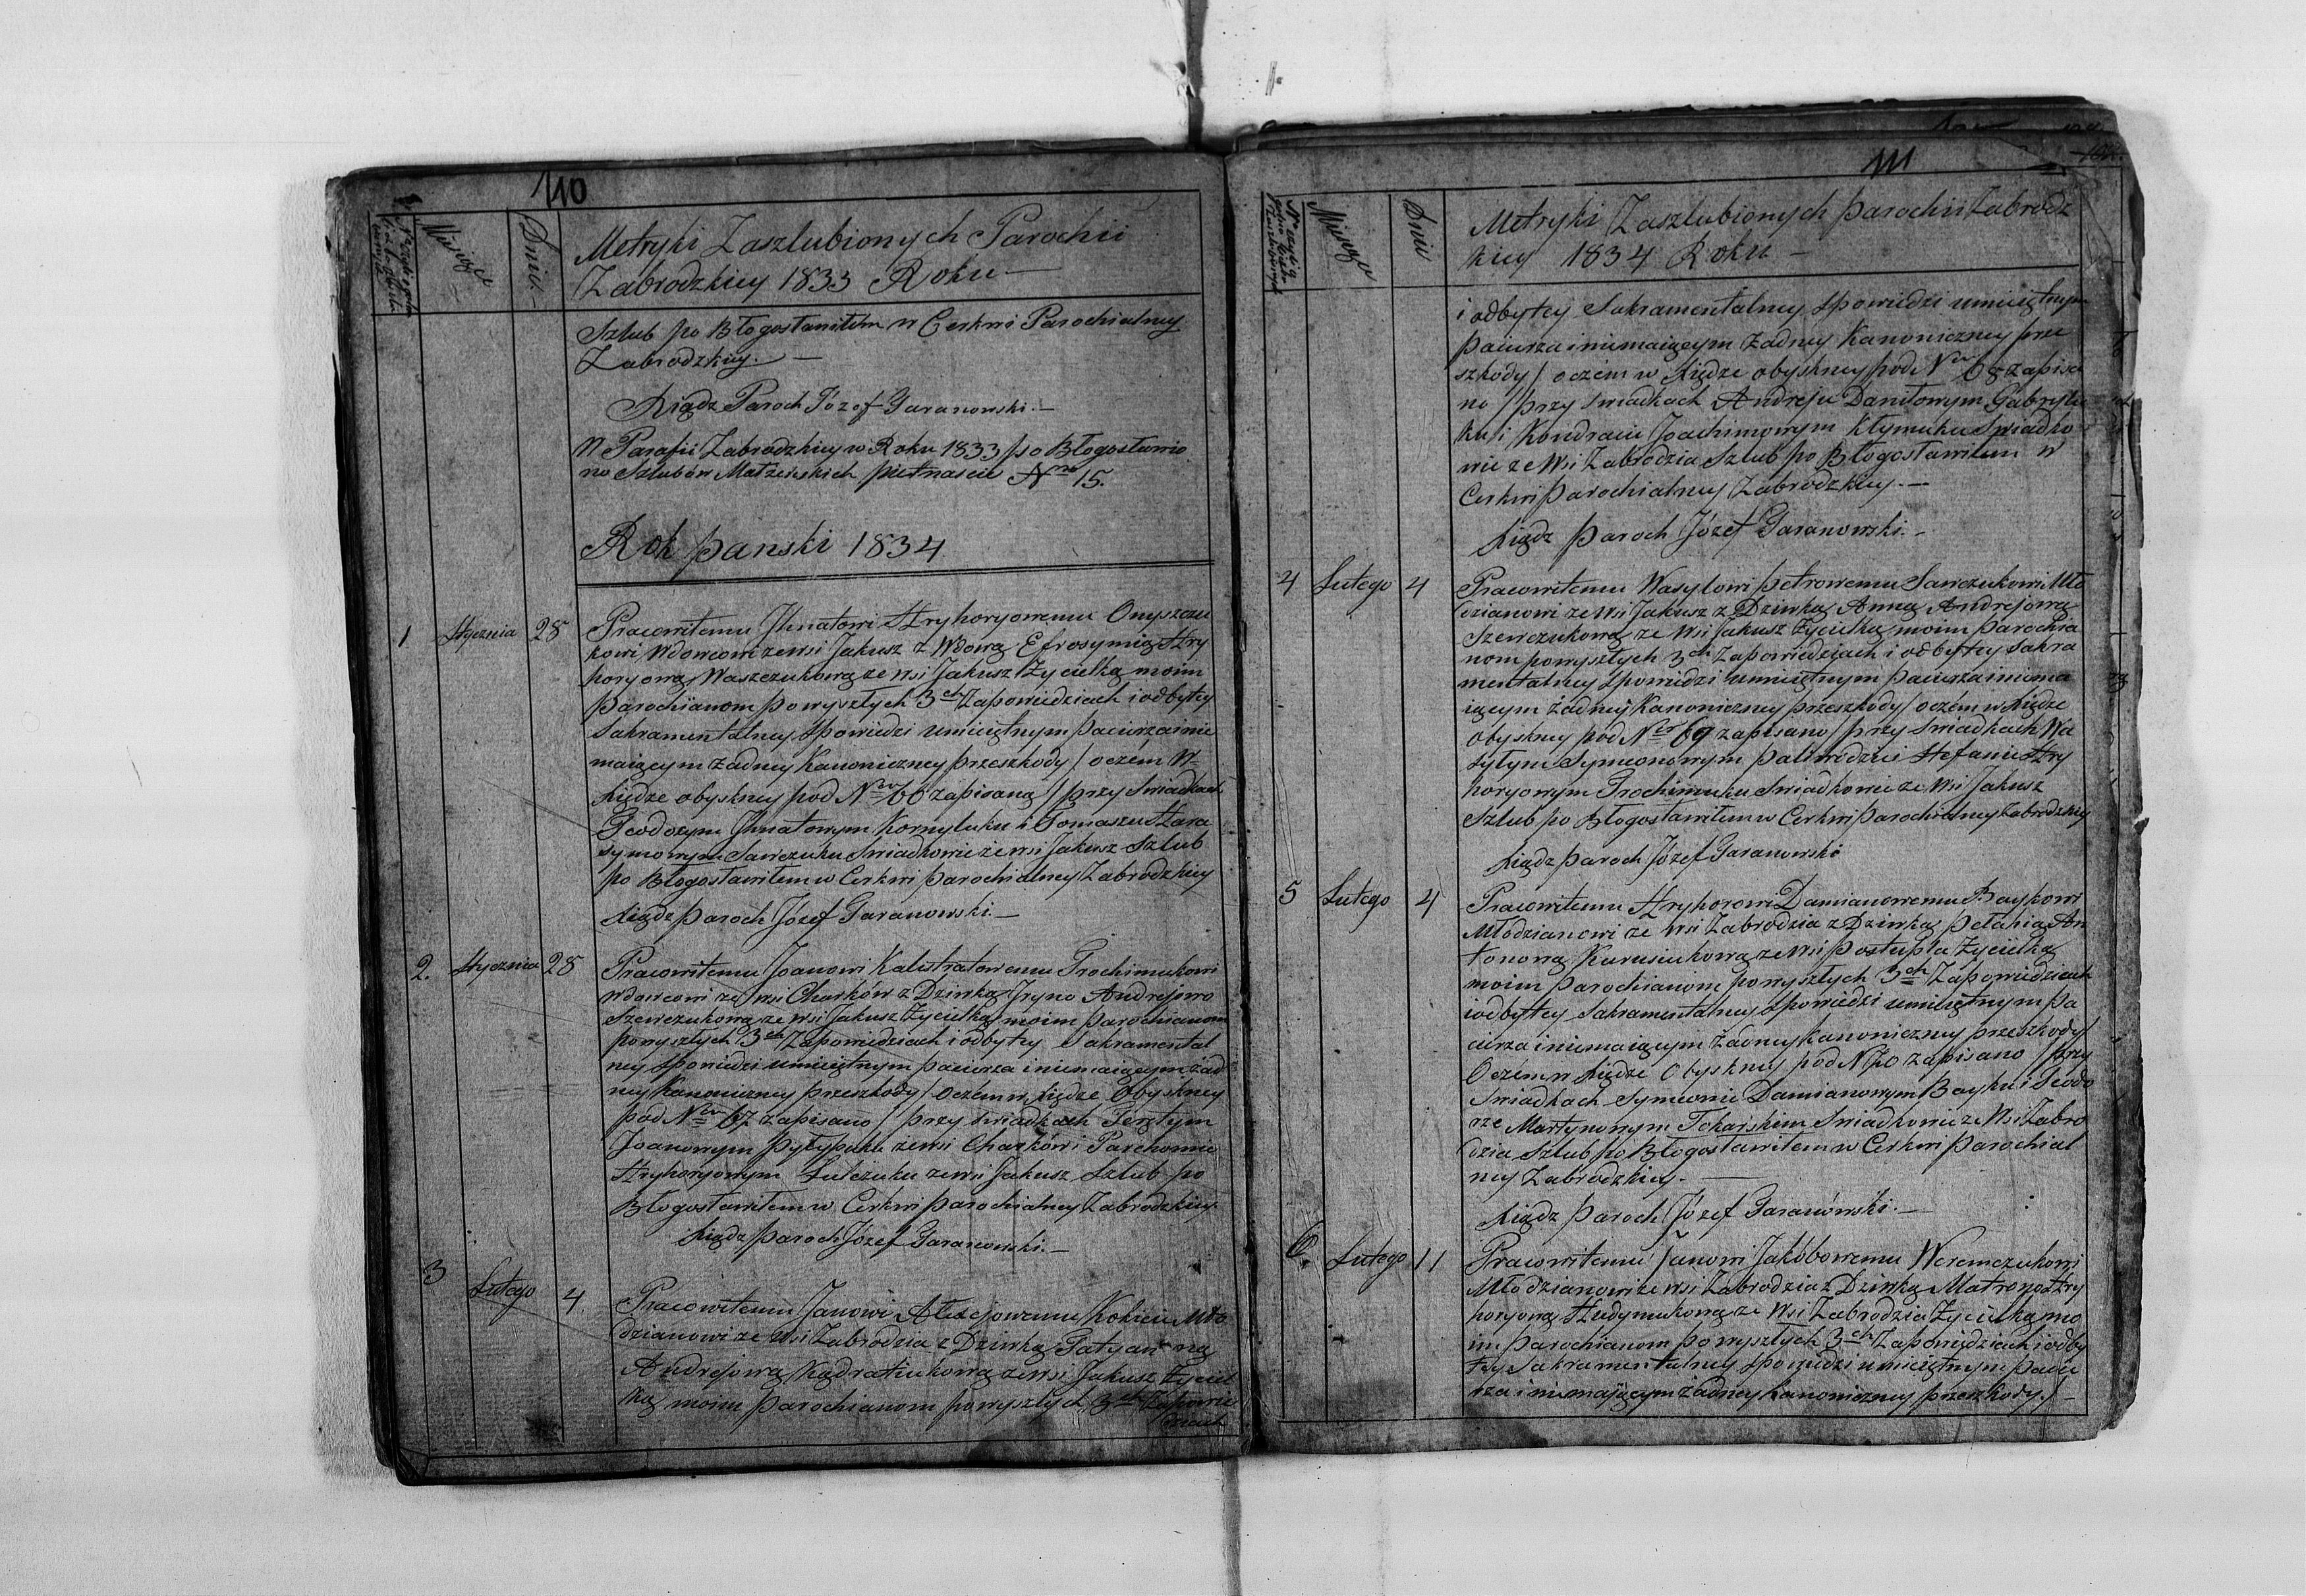 110
Miesiąc
Dnie
Metryki Zaszlubionych Parochii
Zabrodzkiey 1833 Roku
Szlub po Błogosławiłem w Cerkwi Parochialney
Zabrodzkiey.
Xiądz Paroch Józef Garanowski.
W Parafii Zabrodzkiey w Roku 1833 po Błogosławio
no Szlubów Małżeńskich pietnascie Nro 15.
Rok panski 1834
1 Stycznia 28 Pracowitemu Ihnatowi Hryhoryowemu Onyszczu
kowi Wdowcowi ze wsi Jakusz z Wdową Efrosymią Hry
horyową Waszczukową ze wsi Jakusz Życielką moim
parochianom powyszłych 3ch Zapowiedziach i odbytey
Sakramentalney Spowiedzi umieiętnym pacierza i nie
maiącym żadney Kanoniczney przeszkody / oczém w
Xiędze obyskney pod Nrem 66 zapisano / przy Swiadkach
Teodozym Ihnatowym Kornyluku i Tomaszu Hara
symowym Sawczuku Swiadkowie ze wsi Jakusz Szlub
po Błogosławiłem w Cerkwi parochialney Zabrodzkiey
Xiądz paroch Józef Garanowski.
2. Stycznia 28 Pracowitemu Joanowi Kalistratowemu Trochimukowi
Wdowcowi ze wsi Charków z Dziwką Iryno Andrejowo
Szewczukową ze wsi Jakusz Życielką moim parochianom
powyszłych 3ch Zapowiedziach i odbytey Sakramental
ney Spowiedzi umieiętnym pacierza i niemaiącym żad
ney Kanoniczney przeszkody / oczém w Xiędze Obyskney
pod Nrem 67 zapisano / przy Swiadkach
Joanowym Pyłypuku ze wsi Charków i Parchomie
Hryhoryowym Sulczuku ze wsi Jakusz Szlub po
Błogosławiłem w Cerkwi parochialney Zabrodzkiey.
Xiądz paroch Józef Garanowski.
3 Lutego 4 Pracowitemu Janowi Alexejowemu Mło
dzianowi ze wsi Zabrodzia z Dziwką Tatyanną
Andrejową Kądratiukową ze wsi Jakusz Życiel
ką moim parochianom powyszłych 3ch Zapowie
dziach
111
Miesiąc
Dnie
Metryki Zaszlubionych parochii Zabrodz
kiey 1834 Roku
i odbytey Sakramentalney Spowiedzi umieiętnym
pacierza i niemaiącym żadney Kanoniczney prze
szkody / oczém w Xiędze obyskney pod Nrem 68 zapisa
no / przy Swiadkach Andreju Daniłowym Gabrylu
ku i Kondracie Joachimowym Kłymuku Swiadko
wie ze wsi Zabrodzia Szlub po Błogosławiłem w
Cerkwi parochialney Zabrodzkiey.
Xiądz paroch Józef Garanowski.
4 Lutego 4 Pracowitemu Wasylowi petrowemu Sawczukowi Mło
dzianowi ze wsi Jakusz z Dziwką Anną Andrejową
Szewczukową ze wsi Jakusz Życielką moim parochia
nom powyszłych 3ch Zapowiedziach i odbytey Sakra
mentalney Spowiedzi umieiętnym pacierza i niema
iącym żadney Kanoniczney przeszkody / oczém w Xiędze
obyskney pod Nrem 69 zapisano / przy Swiadkach Wa
sylym Symeonowym paliwodzie i Stefanie Hry
horyowym Trochimuku Swiadkowie ze wsi Jakusz
Szlub po Błogosławiłem w Cerkwi parochialney Zabrodzkiey
Xiądz paroch Józef Garanowski
5 Lutego 4 Pracowitemu Hryhorowi Damianowemu Baykowi
Młodzianowi ze wsi Zabrodzia z Dziwką pełahią An
tonową Karusiukową ze wsi postupla Życielką
moim parochianom powyszłych 3ch Zapowiedziach
i odbytey Sakramentalney Spowiedzi umieiętnym pa
cierza i niemaiącym żadney kanoniczney przeszkody /
Oczem w Xiędze Obyskney pod N 70 zapisano / przy
Swiadkach Symeonie Damianowym Bayku i Teodo
rze Martynowym Tokarskim Swiadkowie ze wsi Zabro
dzia Szlub po Błogosławiłem w Cerkwi parochial
ney Zabrodzkiey.
Xiądz paroch Józef Garanowski.
6. Lutego 11 Pracowitemu Janowi Jakóbowemu Weremczukowi
Młodzianowi ze wsi Zabrodzia z Dziwką Matroną Hry
horyową Hudymukową ze wsi Zabrodzia Życielką mo
im parochianom powyszłych 3ch Zapowiedziach i odby
tey Sakramentalney Spowiedzi umieiętnym pacie
rza i niemaiącym żadney kanoniczney przeszkody /